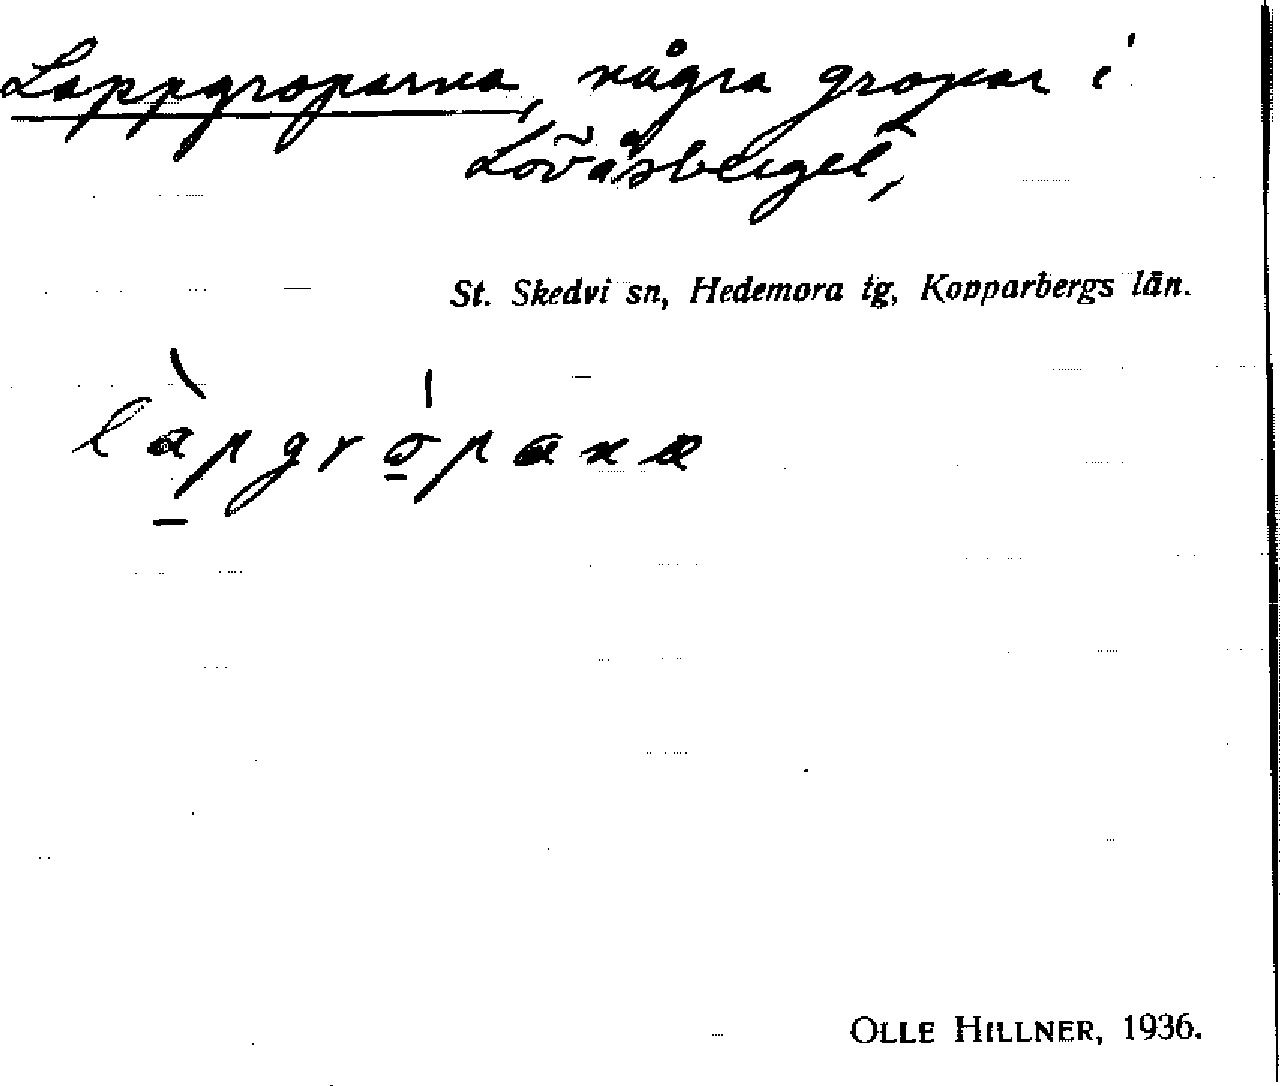 Lappgroparna, några gropar i
Lövåsberget,
St. Skedvi sn, Hedemora tg, Kopparbergs län.
làpgrópana
OLLE HILLNER, 1936.